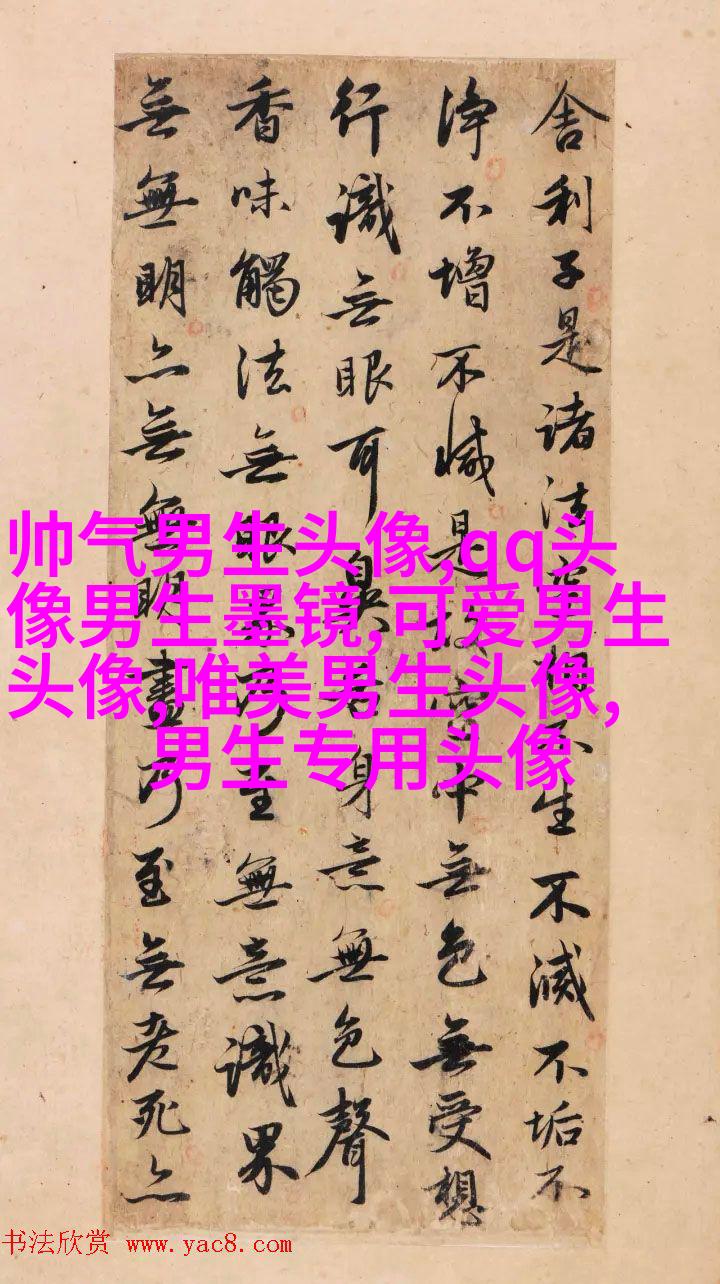 舍利子是諸法空相不生不滅不垢不
淨不增不減是故空中無色無受想
行識無眼耳鼻舌身意無色聲
香味觸法無眼界乃至無意識界
無無明亦無無明盡乃至無老死亦
帅气男生头像,qq头
像男生墨镜,可爱男生
头像,唯美男生头像,
男生专用头像
书法欣赏 www.yac8.com